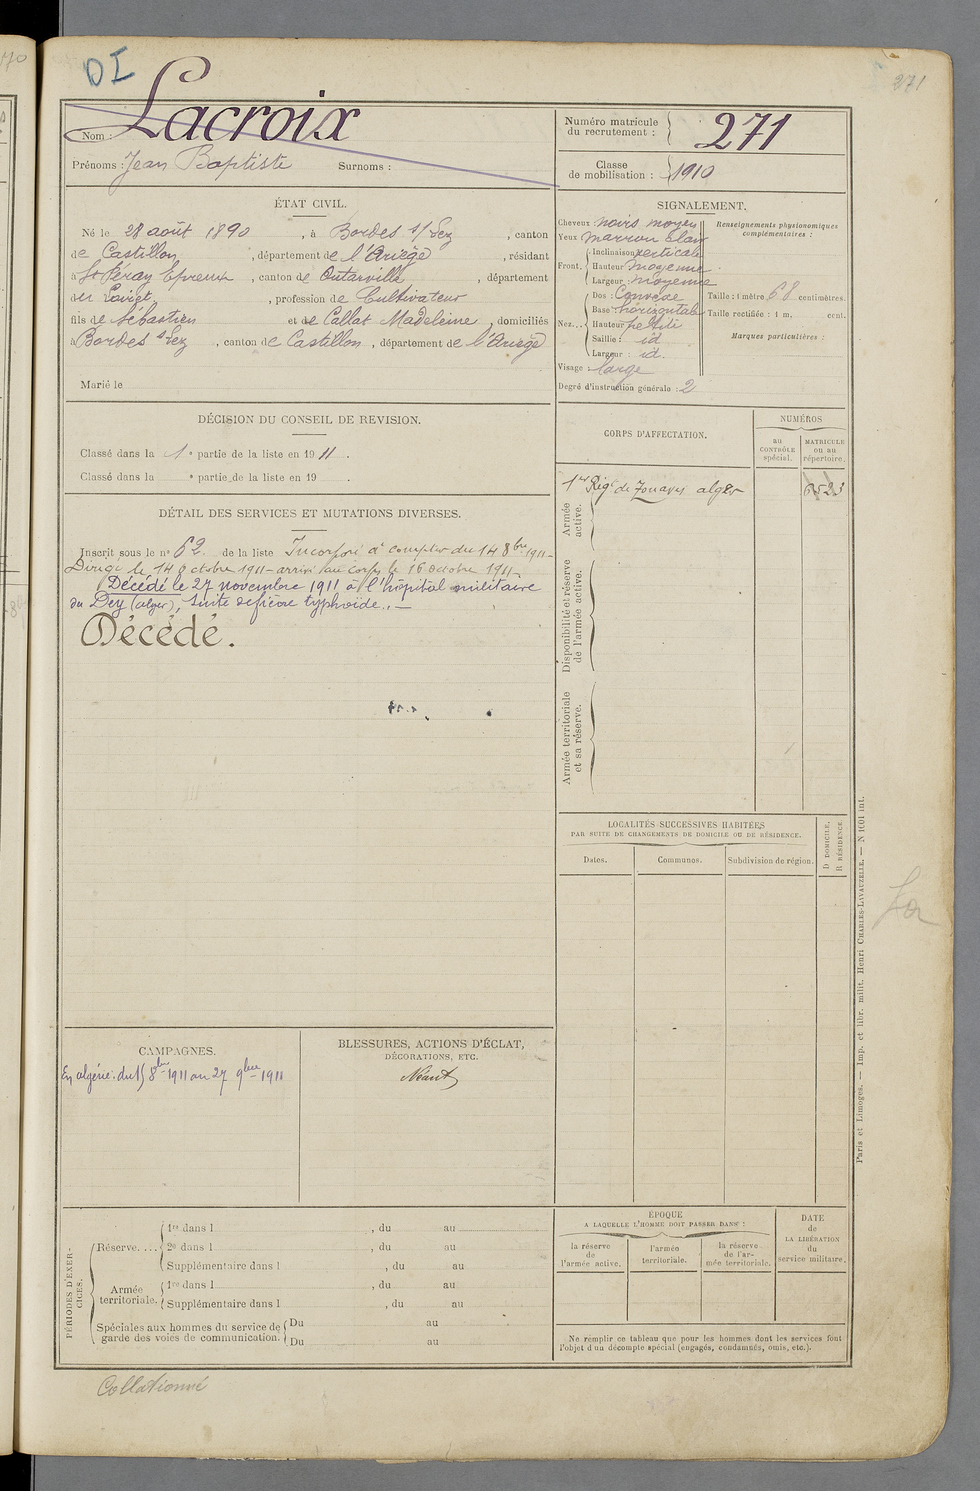 DI
271
Nom : Lacroix
Prénoms : Jean Baptiste Surnoms :
Numéro matricule du recrutement : 271
Classe de mobilisation : 1910
ÉTAT CIVIL.
Né le 28 août 1890, à Bordes s/ Lez, canton
de Castillon, département de l'Ariège, résidant
à St Péray Epreux, canton de Outarville, département
du Loiret, profession de Cultivateur
fils de Sébastien et de Callat Madeleine, domiciliés
à Bordes s Lez, canton de Castillon, département de l'Ariège
Marié le
SIGNALEMENT.
Cheveux noirs moyen
Yeux marron clair
Front. Inclinaison verticale
Hauteur moyenne
Largeur moyenne
Nez. Dos : Convexe
Base : horizontale
Hauteur petite
Saillie : id
Largeur : id.
Visage : large
Degré d'instruction générale : 2
Renseignements physionomiques
complémentaires :
Taille : 1 mètre 68 centimètres.
Taille rectifiée : 1 m. cent.
Marques particulières :
DÉCISION DU CONSEIL DE REVISION.
Classé dans la 1e partie de la liste en 1911.
Classé dans la e partie de la liste en 19 .
DÉTAIL DES SERVICES ET MUTATIONS DIVERSES.
Inscrit sous le no 62. de la liste Incorporé à compter du 14 8bre 1911 -
Dirigé le 14 octobre 1911 - arrivé au corps le 16 octobre 1911.
Décédé le 27 novembre 1911 à l'hôpital militaire
du Dey (alger), suite de fièvre typhoïde. -
Décédé.
CORPS D'AFFECTATION.
NUMÉROS
au CONTRÔLE spécial.
MATRICULE ou au répertoire.
1er Régt de Zouaves alger
Armée active.
Disponibilité et réserve de l'armée active.
Armée territoriale et sa réserve.
LOCALITÉS SUCCESSIVES HABITÉES
PAR SUITE DE CHANGEMENTS DE DOMICILE OU DE RÉSIDENCE.
Dates.
Communes.
Subdivision de région.
D DOMICILE.
R RÉSIDENCE.
CAMPAGNES.
En algérie : du 15 8bre 1911 au 27 9bre 1911
BLESSURES, ACTIONS D'ÉCLAT,
DÉCORATIONS, ETC.
Néant
PÉRIODES D'EXERCICES.
Réserve.... 1re dans l , du au
2e dans l , du au
Supplémentaire dans l , du au
Armée territoriale. 1re dans l , du au
Supplémentaire dans l , du au
Spéciales aux hommes du service de garde des voies de communication. Du au
Du au
ÉPOQUE
A LAQUELLE L'HOMME DOIT PASSER DANS :
la réserve de l'armée active.
l'armée territoriale.
la réserve de l'armée territoriale.
DATE
de
LA LIBÉRATION
du
service militaire.
Ne remplir ce tableau que pour les hommes dont les services font
l'objet d'un décompte spécial (engagés, condamnés, omis, etc.).
Paris et Limoges. — Imp. et libr. milit. Henri CHARLES-LAVAUZELLE. — N 1001 int.
Collationné